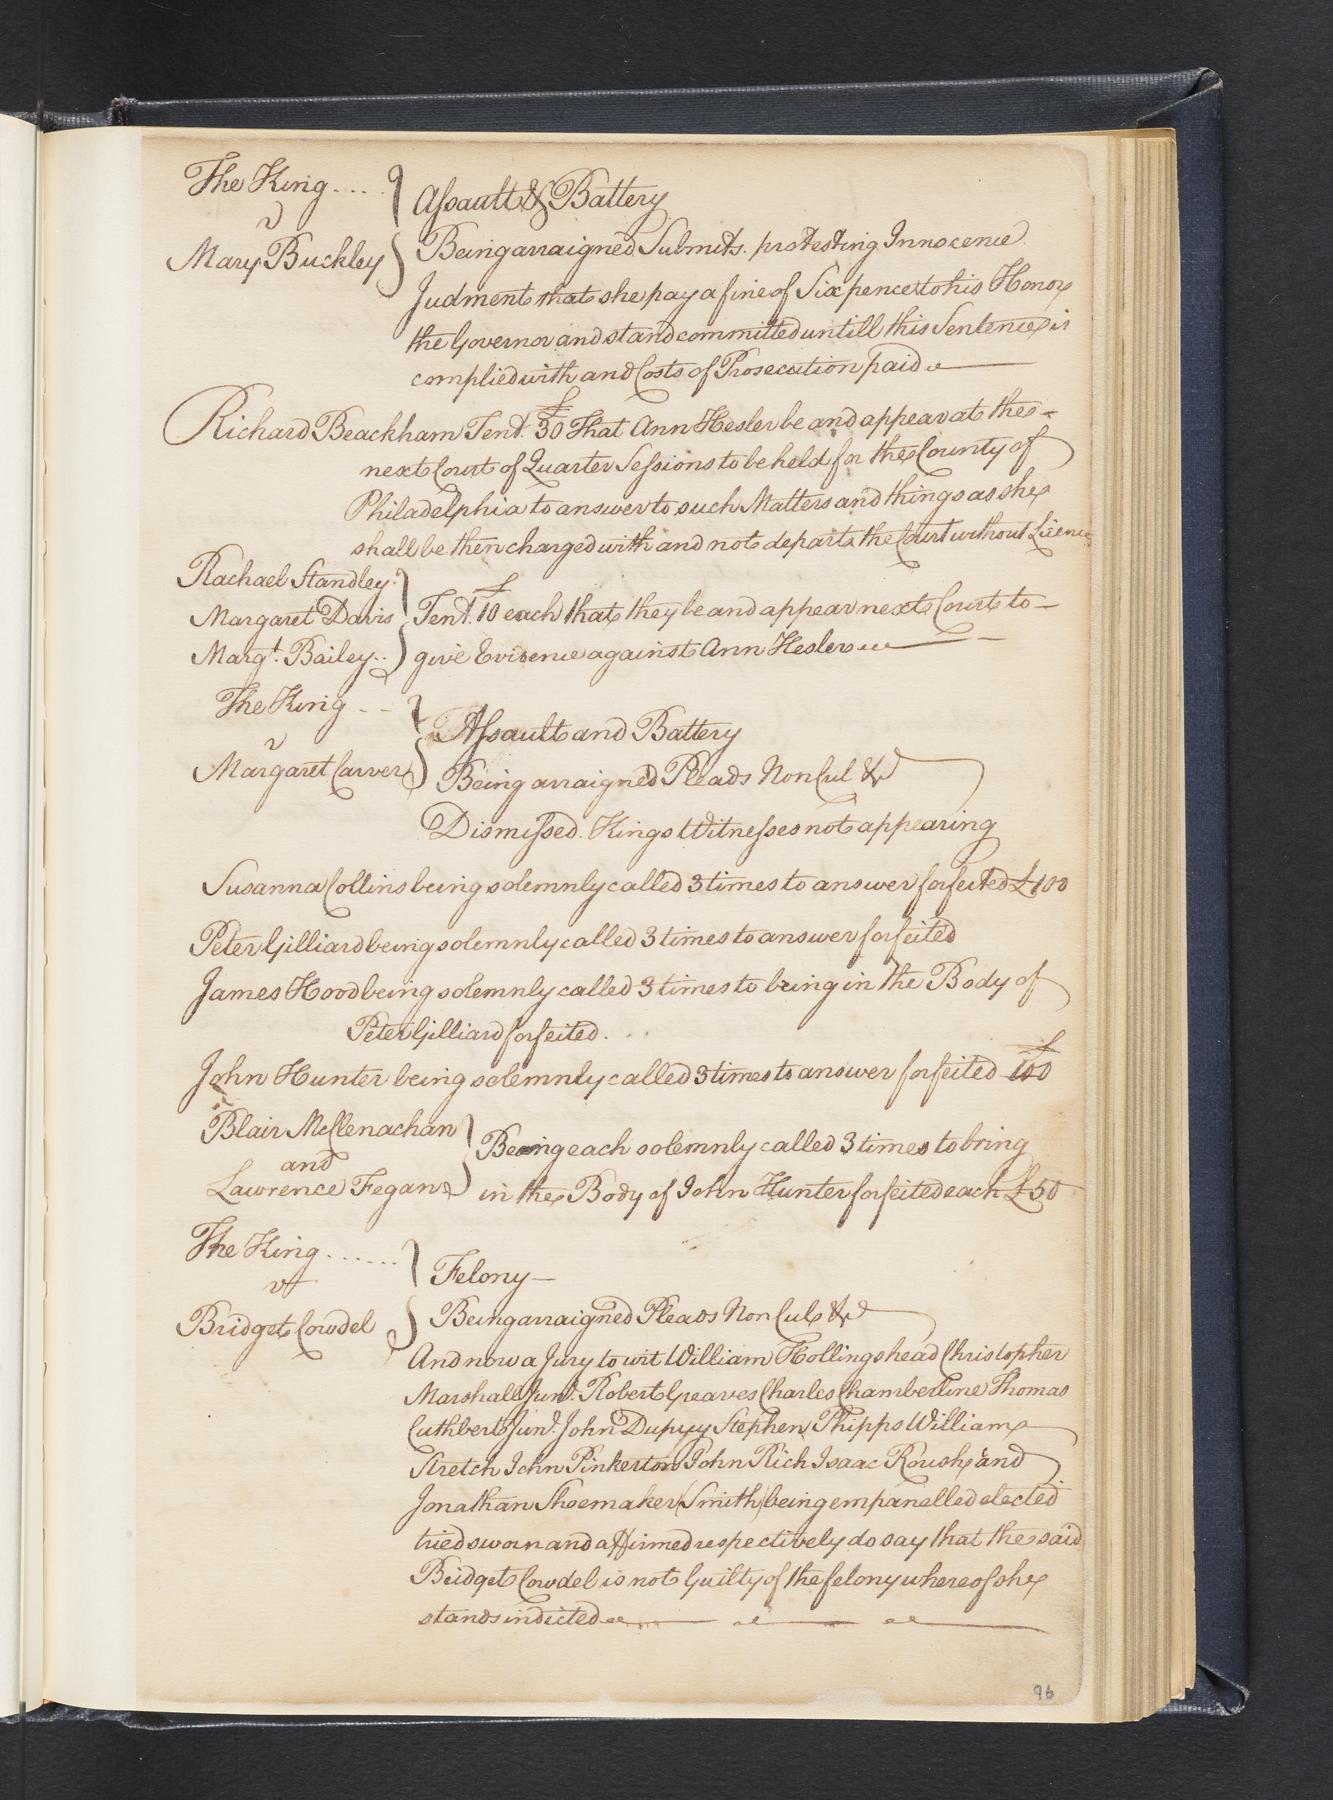 The King....
v
Mary Buckley
Assault & Battery
Being arraigned Submits. protesting Innocence.
Judment that she pay a fine of Six pence to his Honor
the Governor and stand committed untill this Sentence is
complied with and Costs of Prosecution paid
Richard Beackham Tent. £30 That Ann Hesler be and appear at the
next Court of Quarter Sessions to be held for the County of
Philadelphia to answer to such Matters and things as she
shall be then charged with and not depart the Court without Licence
Rachael Standley.
Margaret Davis
Margt. Bailey..
Tent. £10 each that they be and appear next Court to
give Evidence against Ann Hesler
The King --
v
Margaret Carver
Assault and Battery
Being arraigned Pleads Non Cul &c
Dismissed. Kings Witnesses not appearing
Susanna Collins being solemnly called 3 times to answer forfeited £100
Peter Gilliard being solemnly called 3 times to answer forfeited
James Hood being solemnly called 3 times to bring in the Body of
Peter Gilliard forfeited.
John Hunter being solemnly called 3 times to answer forfeited £100
Blair McClenachan
and
Lawrence Fegan
Being each solemnly called 3 times to bring
in the Body of John Hunter forfeited each £50
The King......
v
Bridget Cowdel
Felony
Being arraigned Pleads Non Cul &c
And now a Jury to wit William Hollingshead Christopher
Marshall Junr. Robert Greaves Charles Chamberline Thomas
Cuthbert Junr. John Dupuy Stephen Phipps William
Stretch John Pinkerton John Rich Isaac Roush and
Jonathan Shoemaker (Smith) being empanelled elected
tried sworn and affirmed respectively do say that the said
Bridget Cowdel is not Guilty of the felony whereof she
stands indicted
96